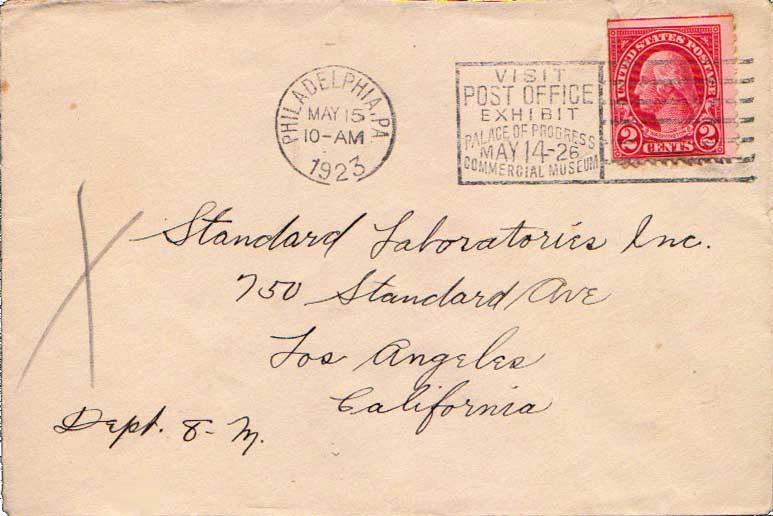 PHILADELPHIA, PA
MAY 15
10-AM
1923
VISIT
POST OFFICE
EXHIBIT
PALACE OF PROGRESS
MAY 14-26
COMMERCIAL MUSEUM
UNITED STATES POSTAGE
2 CENTS 2
Standard Laboratories Inc.
750 Standard Ave
Los Angeles
California
Dept. 8-M.